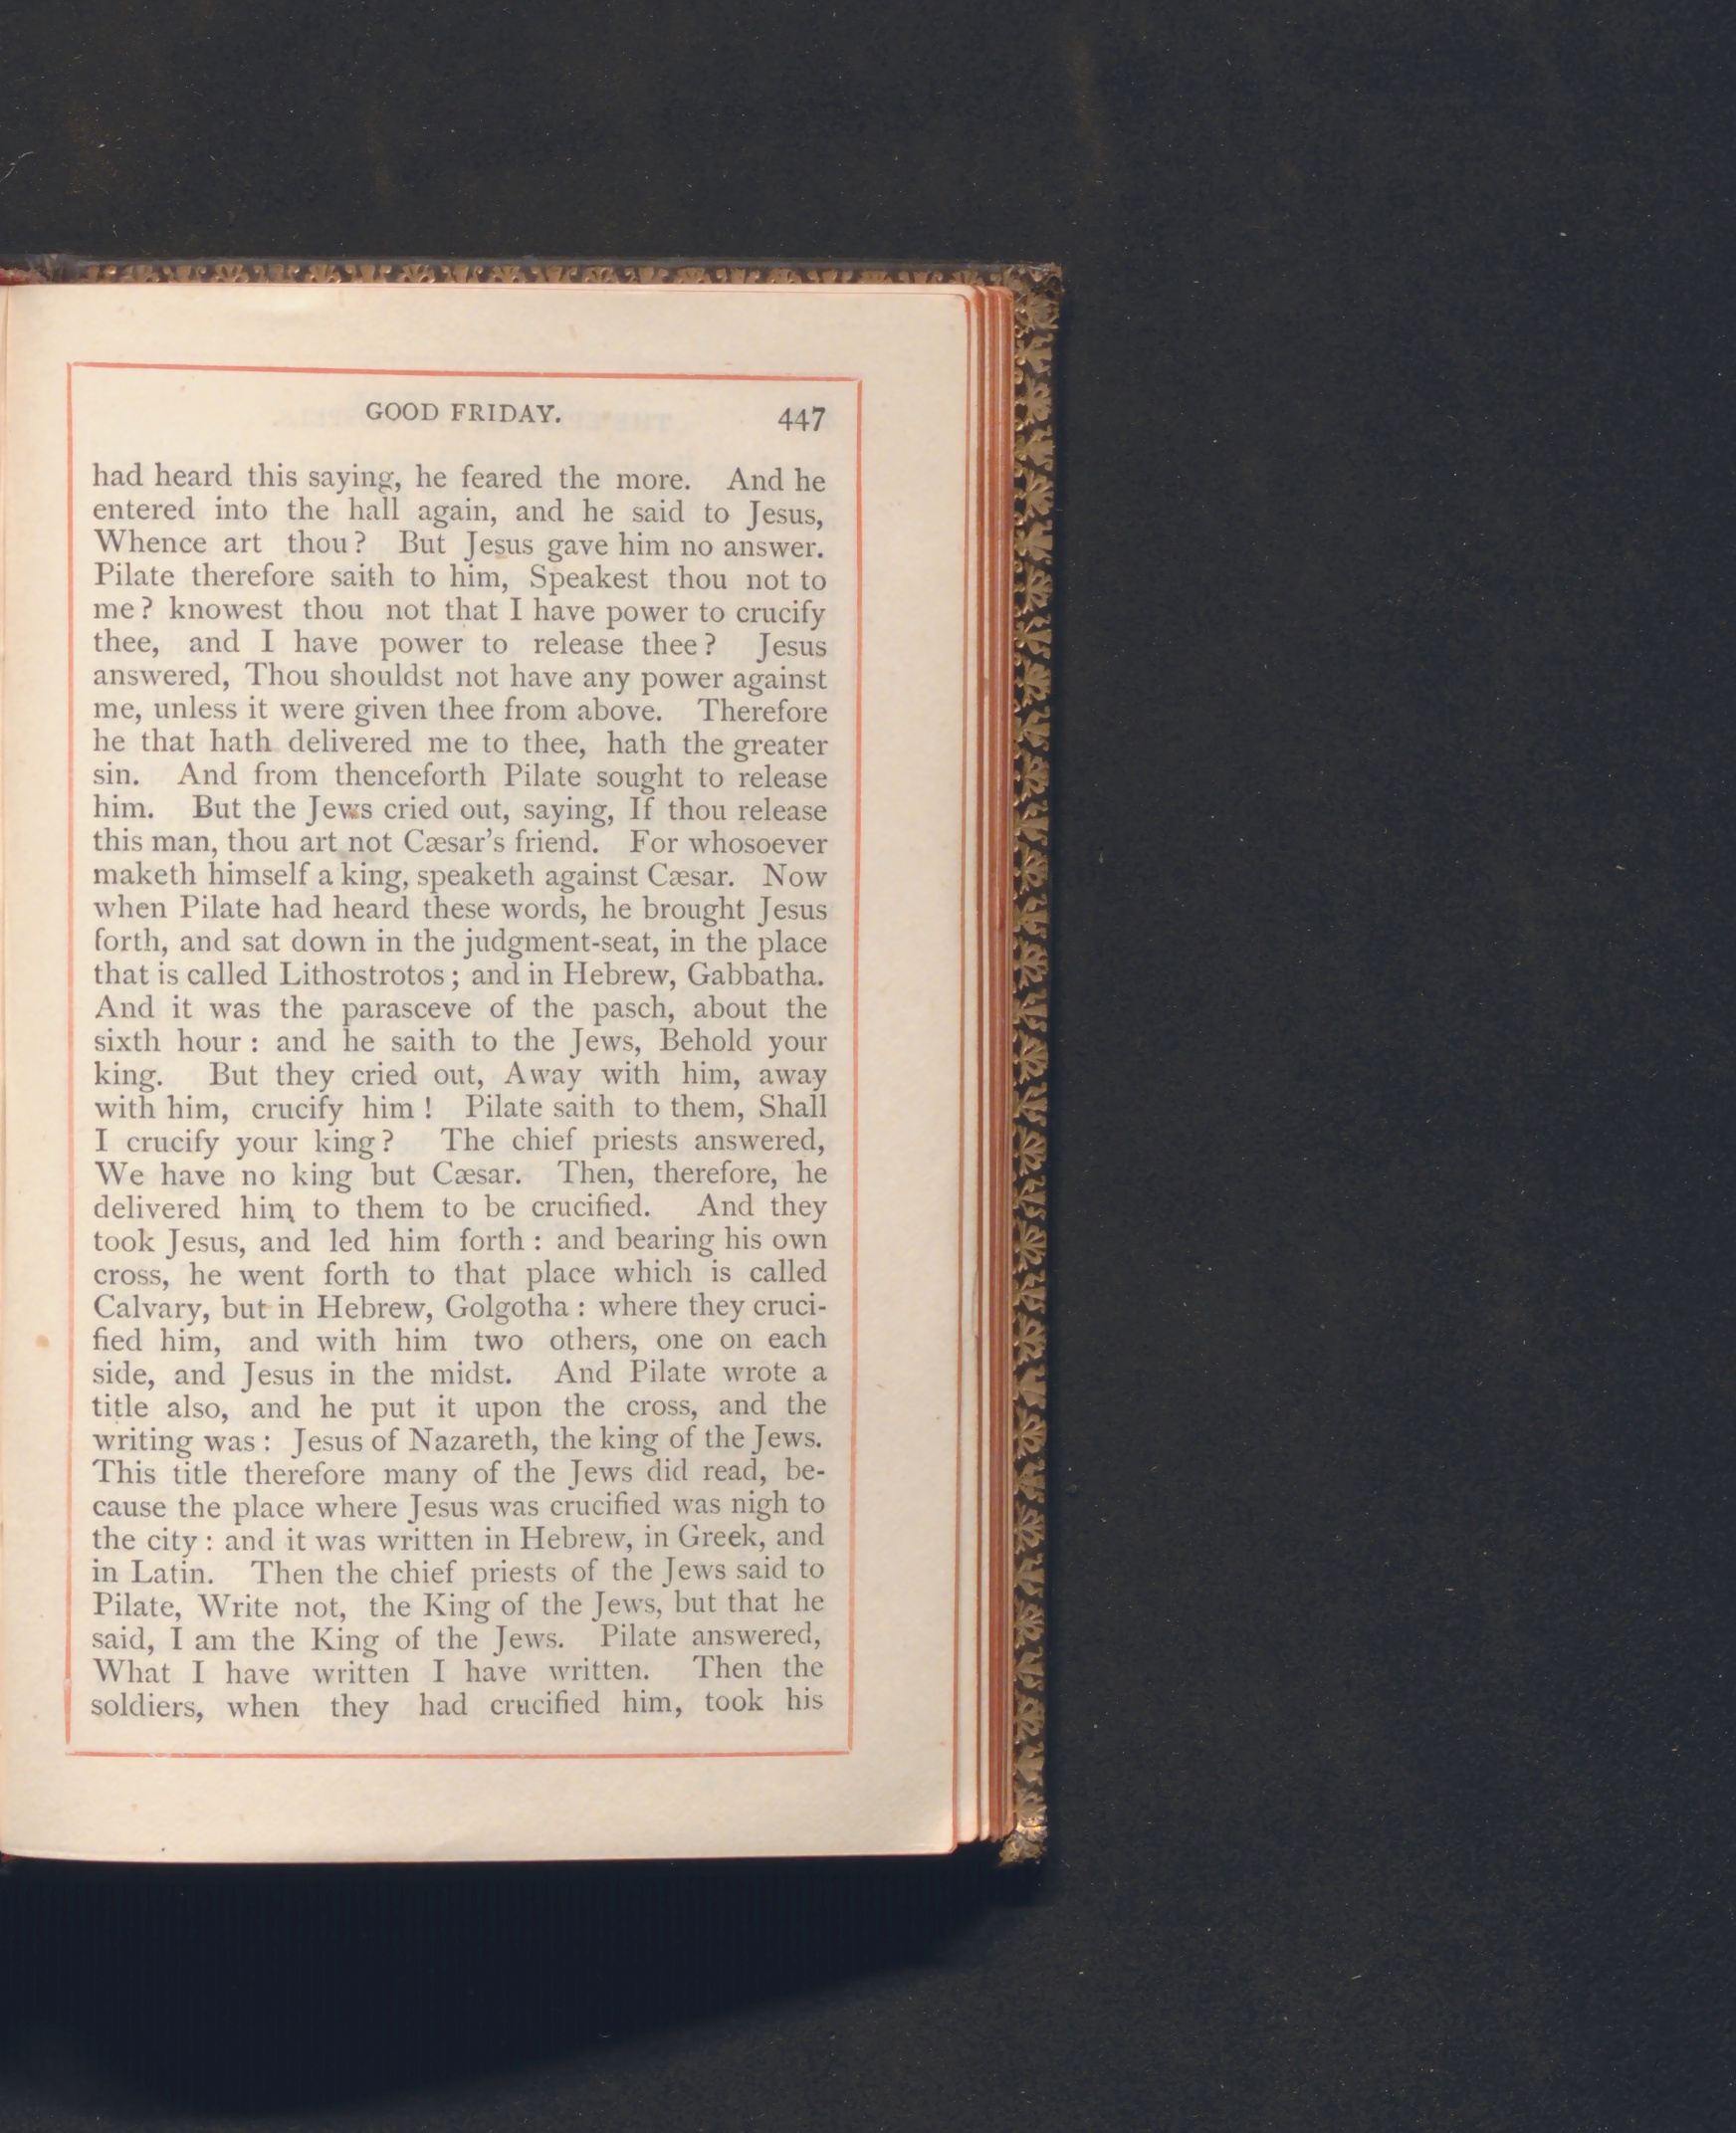 GOOD FRIDAY. 447
had heard this saying, he feared the more. And he
entered into the hall again, and he said to Jesus,
Whence art thou? But Jesus gave him no answer.
Pilate therefore saith to him, Speakest thou not to
me? knowest thou not that I have power to crucify
thee, and I have power to release thee? Jesus
answered, Thou shouldst not have any power against
me, unless it were given thee from above. Therefore
he that hath delivered me to thee, hath the greater
sin. And from thenceforth Pilate sought to release
him. But the Jews cried out, saying, If thou release
this man, thou art not Cæsar's friend. For whosoever
maketh himself a king, speaketh against Cæsar. Now
when Pilate had heard these words, he brought Jesus
forth, and sat down in the judgment-seat, in the place
that is called Lithostrotos; and in Hebrew, Gabbatha.
And it was the parasceve of the pasch, about the
sixth hour: and he saith to the Jews, Behold your
king. But they cried out, Away with him, away
with him, crucify him! Pilate saith to them, Shall
I crucify your king? The chief priests answered,
We have no king but Cæsar. Then, therefore, he
delivered him to them to be crucified. And they
took Jesus, and led him forth: and bearing his own
cross, he went forth to that place which is called
Calvary, but in Hebrew, Golgotha: where they cruci-
fied him, and with him two others, one on each
side, and Jesus in the midst. And Pilate wrote a
title also, and he put it upon the cross, and the
writing was: Jesus of Nazareth, the king of the Jews.
This title therefore many of the Jews did read, be-
cause the place where Jesus was crucified was nigh to
the city: and it was written in Hebrew, in Greek, and
in Latin. Then the chief priests of the Jews said to
Pilate, Write not, the King of the Jews, but that he
said, I am the King of the Jews. Pilate answered,
What I have written I have written. Then the
soldiers, when they had crucified him, took his